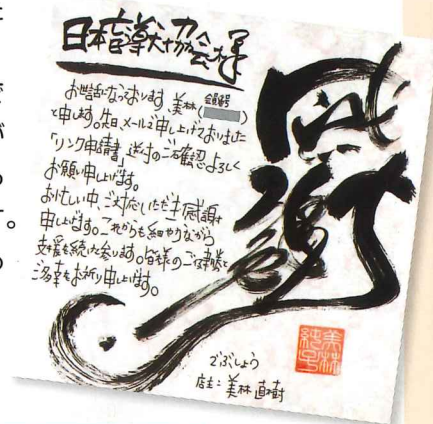 日本盲導犬協会様
お世話になっております。美林(会員番号　　)
と申します。先日、メールで申し上げておりました
「リンク申請書」送付のご確認よろしく
お願い申し上げます。
お忙しい中、ご対応いただき感謝
申し上げます。これからも細やかながら
支援を続けて参ります。皆様のご健勝と
ご多幸をお祈り申し上げます。
でぶしょう
店主：美林 直樹